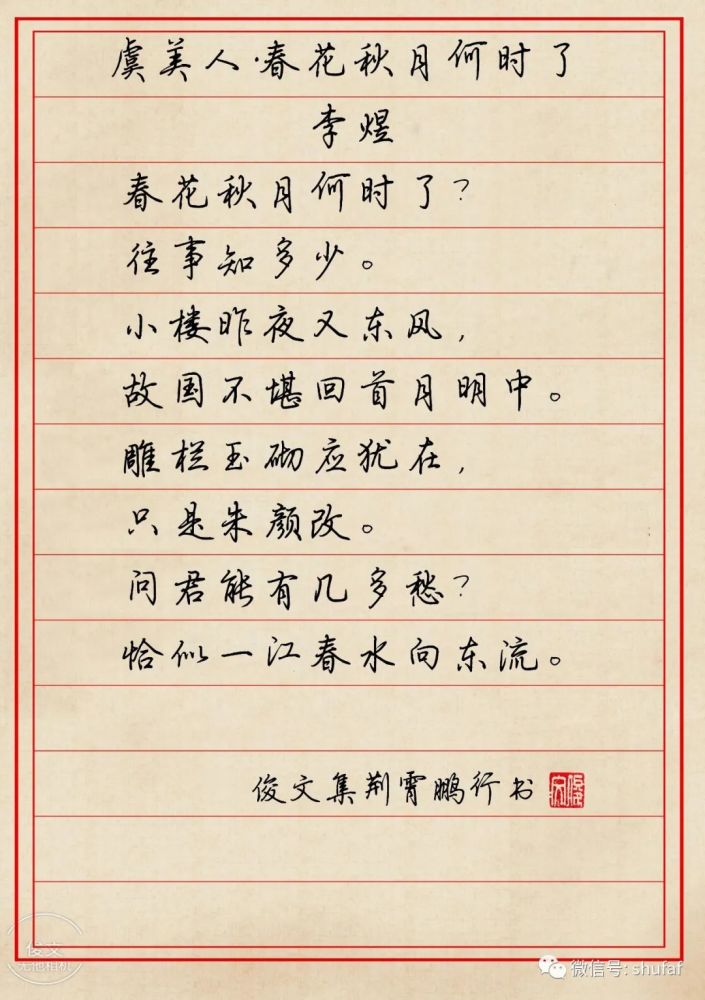 虞美人·春花秋月何时了
李煜
春花秋月何时了?
往事知多少。
小楼昨夜又东风,
故国不堪回首月明中。
雕栏玉砌应犹在,
只是朱颜改。
问君能有几多愁?
恰似一江春水向东流。
俊文集荆霄鹏行书
俊文
无他相机
微信号: shufaf